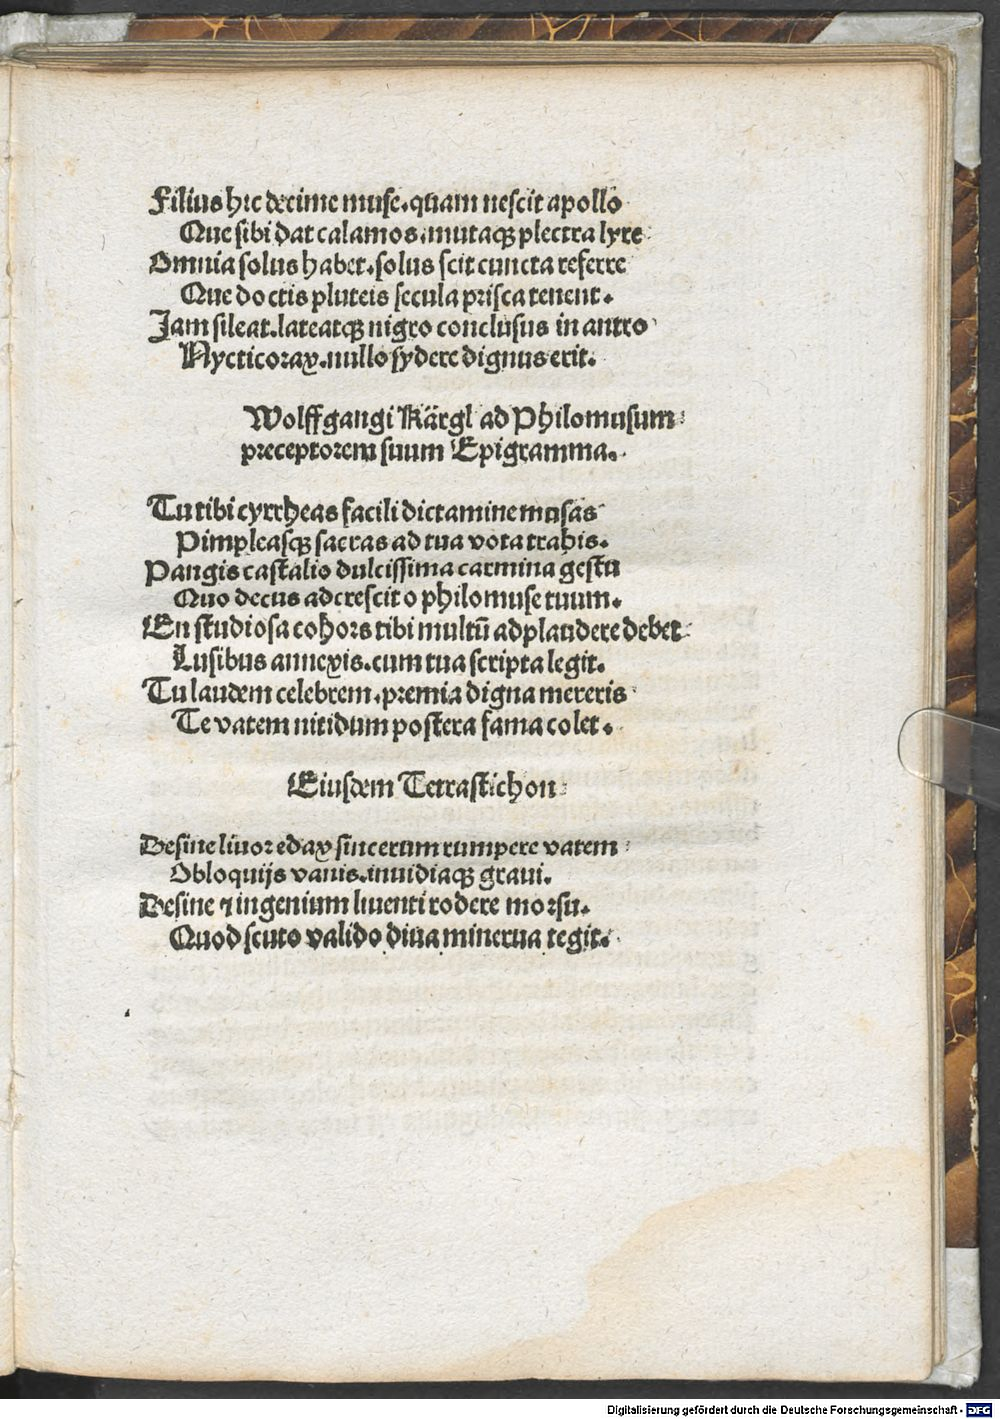 Filius hic decime muse.quam nescit apollo
Que sibi dat calamos.mutaqꝫ plectra lyre
Omnia solus habet.solus scit cuncta referre
Que doctis pluteis secula prisca tenent.
Jam sileat.lateatqꝫ nigro conclusus in antro
Nycticorax.nullo sydere dignus erit.
Wolffgangi Kärgl ad Philomusum
preceptorem suum Epigramma.
Tu tibi cyrrheas facili dictamine musas
Pimpleasqꝫ sacras ad tua vota trahis.
Pangis castalio dulcissima carmina gestu
Quo decus adcrescit o philomuse tuum.
En studiosa cohors tibi multū adplaudere debet
Lusibus annexis.cum tua scripta legit.
Tu laudem celebrem.premia digna mereris
Te vatem nitidum postera fama colet.
Eiusdem Tetrastichon
Desine livor edax sincerum rumpere vatem
Obloquijs vanis.inuidiaqꝫ graui.
Desine ⁊ ingenium liuenti rodere morsu.
Quod scuto valido diua minerua tegit.
Digitalisierung gefördert durch die Deutsche Forschungsgemeinschaft - DFG